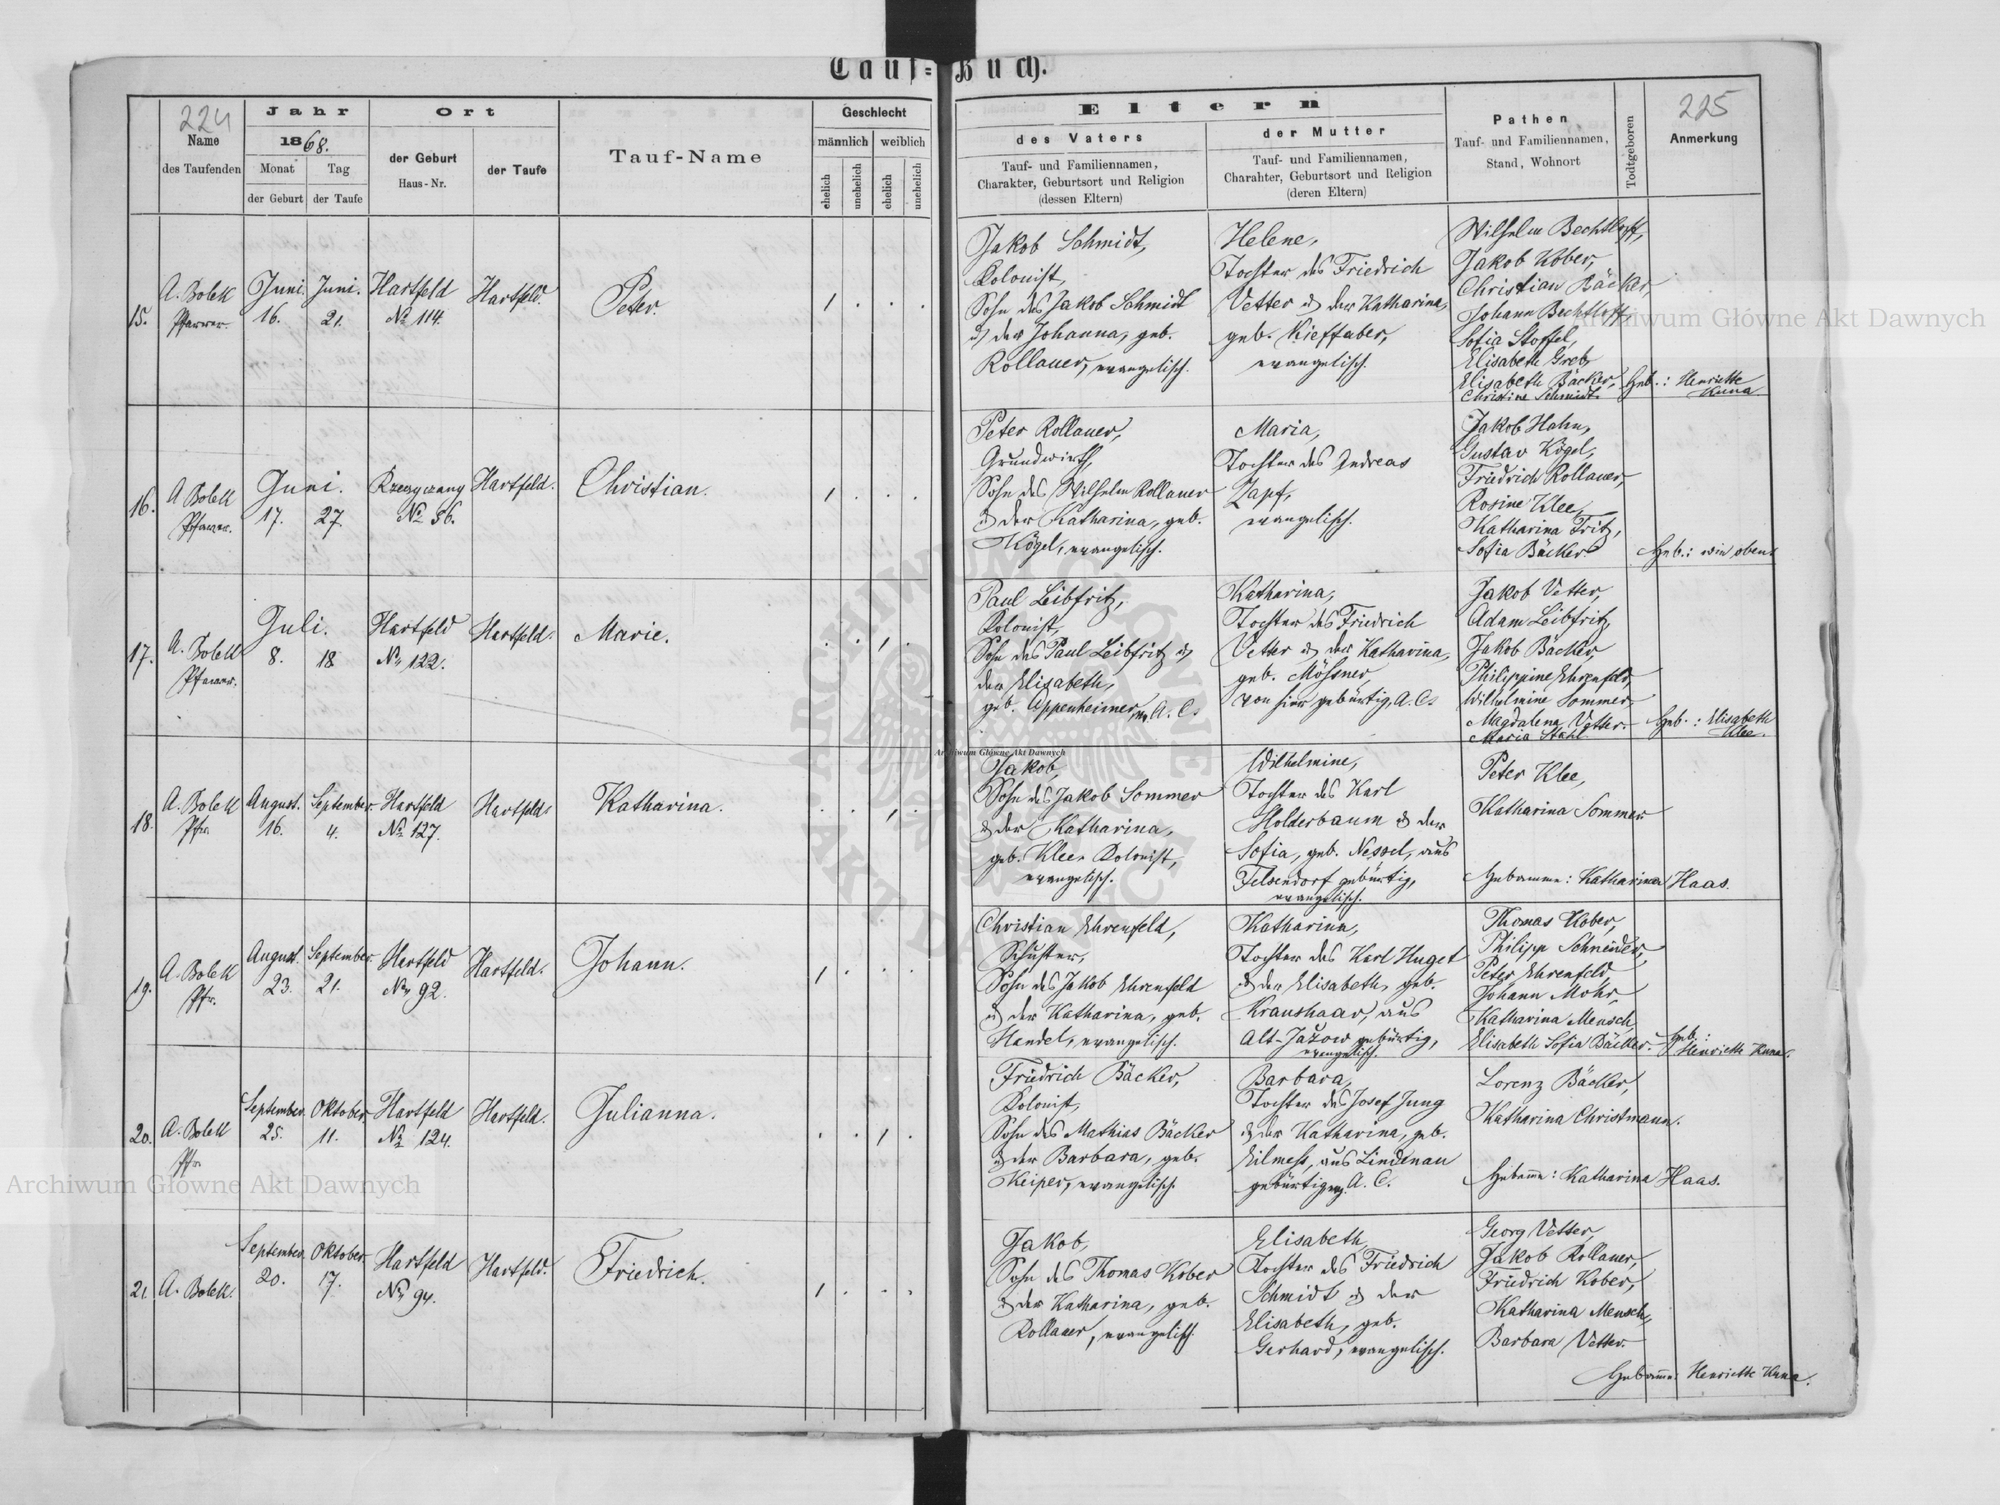 Tauf-Buch.
224
Name
des Taufenden
Jahr
1868.
Monat
der Geburt
Tag
der Taufe
Ort
der Geburt
Haus-Nr.
der Taufe
Tauf-Name
Geschlecht
männlich
weiblich
ehelich
unehelich
ehelich
unehelich
Eltern
des Vaters
Tauf- und Familiennamen,
Charakter, Geburtsort und Religion
(dessen Eltern)
der Mutter
Tauf- und Familiennamen,
Charahter, Geburtsort und Religion
(deren Eltern)
Pathen
Tauf- und Familiennamen,
Stand, Wohnort
Todtgeboren
225
Anmerkung
15.
A. Bolek
Pfarrer.
Juni
16.
Juni.
21.
Hartfeld
No 114.
Hartfeld.
Peter.
1 . . .
Jakob Schmidt,
Kolonist,
Sohn des Jakob Schmidt
u der Johanna, geb.
Rollauer, evangelisch.
Helene,
Tochter des Friedrich
Vetter u der Katharina,
geb. Kieffaber,
evangelisch.
Wilhelm Bechtloff,
Jakob Kober,
Christian Bäcker,
Johann Bechtloff,
Sofia Stoffel,
Elisabeth Greb,
Elisabeth Bäcker,
Christine Schmidt.
Heb.: Henriette
Kuna.
16.
A. Bolek
Pfarrer.
Juni.
17. 27.
Rzeczyczany
No 56.
Hartfeld.
Christian.
1 . . .
Peter Rollauer,
Grundwirth,
Sohn des Wilhelm Rollauer
u der Katharina, geb.
Kögel, evangelisch.
Maria,
Tochter des Andreas
Zapf,
evangelisch.
Jakob Hahn,
Gustav Kögel,
Friedrich Rollauer,
Rosine Klee,
Katharina Fritz,
Sofia Bäcker
Heb.: wie oben.
17.
A. Bolek
Pfarrer.
Juli.
8. 18
Hartfeld
No 122.
Hartfeld.
Marie.
. . 1 .
Paul Leibfritz,
Kolonist,
Sohn des Paul Leibfritz u
der Elisabeth,
geb. Appenheimer, ev. A. C.
Katharina,
Tochter des Friedrich
Vetter u der Katharina,
geb. Mössner,
von hier gebürtig, A. C.
Jakob Vetter,
Adam Leibfritz,
Jakob Bäcker,
Philippine Ehrenfeld,
Wilhelmine Sommer,
Magdalena Vetter.
Maria Stahl
Heb.: Elisabeth
Klee.
18.
A. Bolek
Pfr.
August.
16.
September.
4.
Hartfeld
No 127.
Hartfeld.
Katharina.
. . 1 .
Jakob,
Sohn des Jakob Sommer
u der Katharina,
geb. Klee, Kolonist,
evangelisch.
Wilhelmine,
Tochter des Karl
Holderbaum u der
Sofia, geb. Nessel, aus
Felsendorf gebürtig,
evangelisch.
Peter Klee,
Katharina Sommer
Hebamme: Katharina Haas.
19.
A. Bolek
Pfr.
August.
23.
September.
21.
Hartfeld
No 92.
Hartfeld.
Johann.
1 . . .
Christian Ehrenfeld,
Schuster,
Sohn des Jakob Ehrenfeld
u der Katharina, geb.
Handel, evangelisch.
Katharina,
Tochter des Karl Huget
u der Elisabeth, geb.
Kraushaar, aus
Alt-Jażow gebürtig,
evangelisch.
Thomas Kober,
Philipp Schneider,
Peter Ehrenfeld,
Johann Mohr,
Katharina Mensch,
Elisabeth Sofia Bäcker.
Heb.:
Henriette Kuna.
20.
A. Bolek
Pfr.
September.
25.
Oktober.
11.
Hartfeld
No 124.
Hartfeld.
Julianna.
. . 1 .
Friedrich Bäcker,
Kolonist,
Sohn des Mathias Bäcker
u der Barbara, geb.
Keiper, evangelisch.
Barbara,
Tochter des Josef Jung
u der Katharina, geb.
Eilmess, aus Lindenau
gebürtig, ev. A. C.
Lorenz Bäcker,
Katharina Christmann.
Hebamme: Katharina Haas.
21.
A. Bolek.
September.
20.
Oktober.
17.
Hartfeld
No 94.
Hartfeld.
Friedrich.
1 . . .
Jakob,
Sohn des Thomas Kober
u der Katharina, geb.
Rollauer, evangelisch.
Elisabeth,
Tochter des Friedrich
Schmidt u der
Elisabeth, geb.
Gerhard, evangelisch.
Georg Vetter,
Jakob Rollauer,
Friedrich Kober,
Katharina Mensch,
Barbara Vetter.
Hebamme: Henriette Kuna.
Archiwum Główne Akt Dawnych
Archiwum Główne Akt Dawnych
Archiwum Główne Akt Dawnych
ARCHIWUM GŁÓWNE AKT DAWNYCH